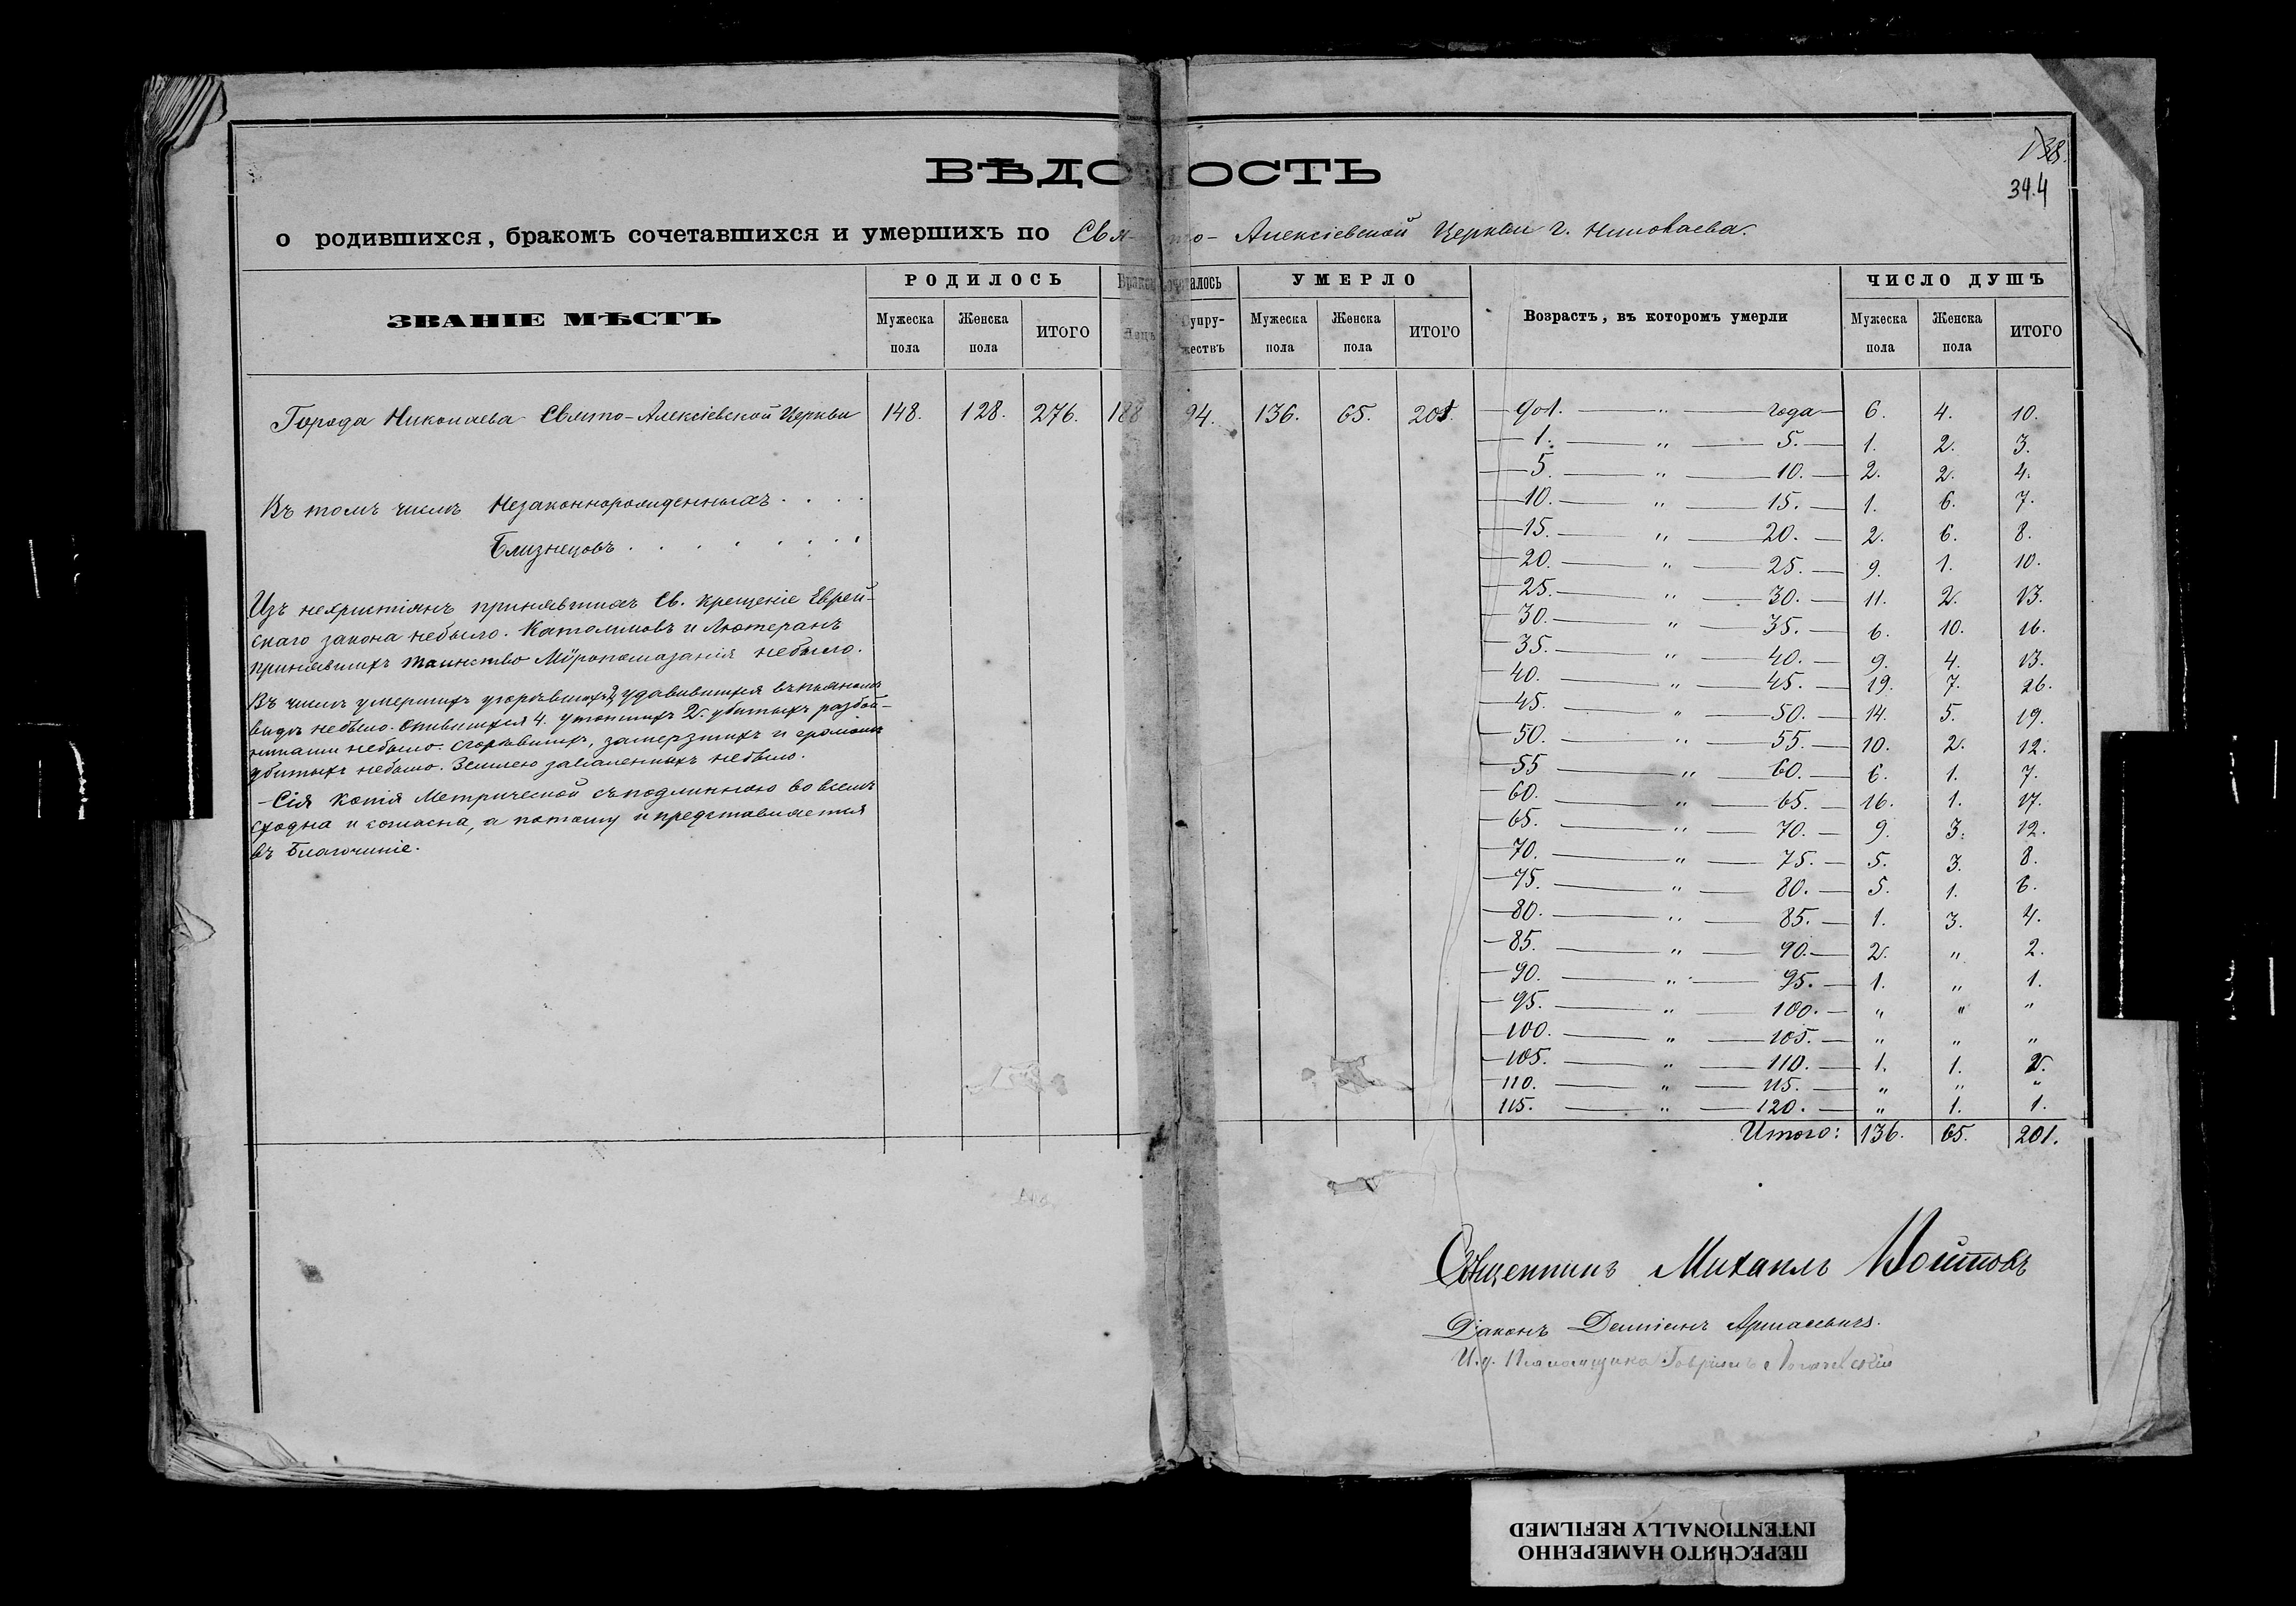 138.
34.4
ВѢДОМОСТЬ
о родившихся, бракомъ сочетавшихся и умершихъ по Свято-Алексіевской Церкви г. Николаева.
ЗВАНІЕ МѢСТЪ
РОДИЛОСЬ
Мужеска пола
Женска пола
ИТОГО
Бракомъ сочеталось
Лицъ
Супружествъ
УМЕРЛО
Мужеска пола
Женска пола
ИТОГО
Возрастъ, въ которомъ умерли
ЧИСЛО ДУШЪ
Мужеска пола
Женска пола
ИТОГО
Города Николаева Свято-Алексіевской Церкви 148. 128. 276. 188 94. 136. 65. 201.
Въ томъ числѣ Незаконнорожденныхъ . . . .
Близнецовъ . . . . . . . .
Изъ нехристіянъ принявшихъ Св. Крещеніе Еврей-
скаго закона небыло. Католиковъ и Лютеранъ
принявшихъ таинство Мѵропомазанія небыло.
Въ числѣ умершихъ угорѣвшихъ 2, удавившихся въ пьяномъ
видѣ небыло. Опившихся 4. утопшихъ 2. убитыхъ разбой-
никами небыло. Сгорѣвшихъ, замерзшихъ и громомъ
убитыхъ небыло. Землею заваленныхъ небыло.
- Сія Копія Метрической съ подлинною во всемъ
сходна и согласна, а потому и представляется
въ Благочиніе.
до 1. " года 6. 4. 10.
1. " 5. 1. 2. 3.
5. " 10. 2. 2. 4.
10. " 15. 1. 6. 7.
15. " 20. 2. 6. 8.
20. " 25. 9. 1. 10.
25. " 30. 11. 2. 13.
30. " 35. 6. 10. 16.
35. " 40. 9. 4. 13.
40. " 45. 19. 7. 26.
45. " 50. 14. 5. 19.
50. " 55. 10. 2. 12.
55 " 60. 6. 1. 7.
60. " 65. 16. 1. 17.
65. " 70. 9. 3. 12.
70. " 75. 5. 3. 8.
75. " 80. 5. 1. 6.
80. " 85. 1. 3. 4.
85. " 90. 2. " 2.
90. " 95. 1. " 1.
95. " 100. " " "
100. " 105. " " "
105. " 110. 1. 1. 2.
110. " 115. " " "
115. " 120. " 1. 1.
Итого: 136. 65. 201.
Священникъ Михаилъ
Діаконъ Даміанъ
И. д. Псаломщика Гавріилъ
ПЕРЕСНЯТО НАМЕРЕННО
INTENTIONALLY REFILMED